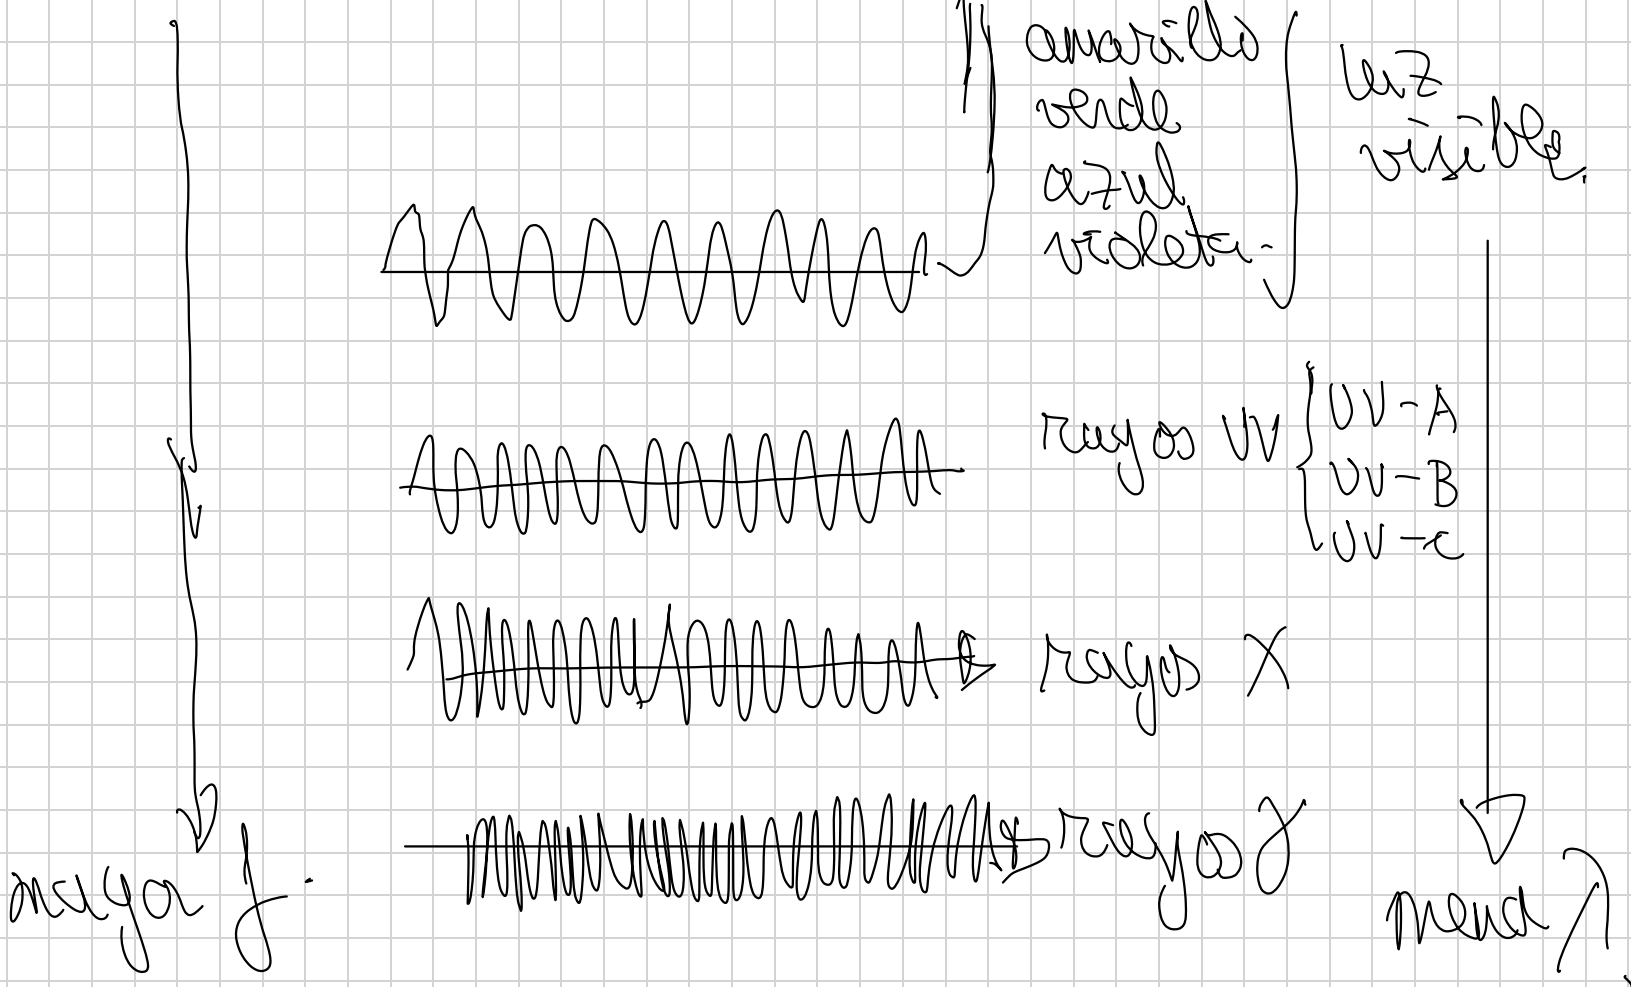 amarillo
verde
azul
violeta.
luz
visible.
rayos UV
UV-A
UV-B
UV-C
rayos X
rayos γ
mayor f.
menor λ